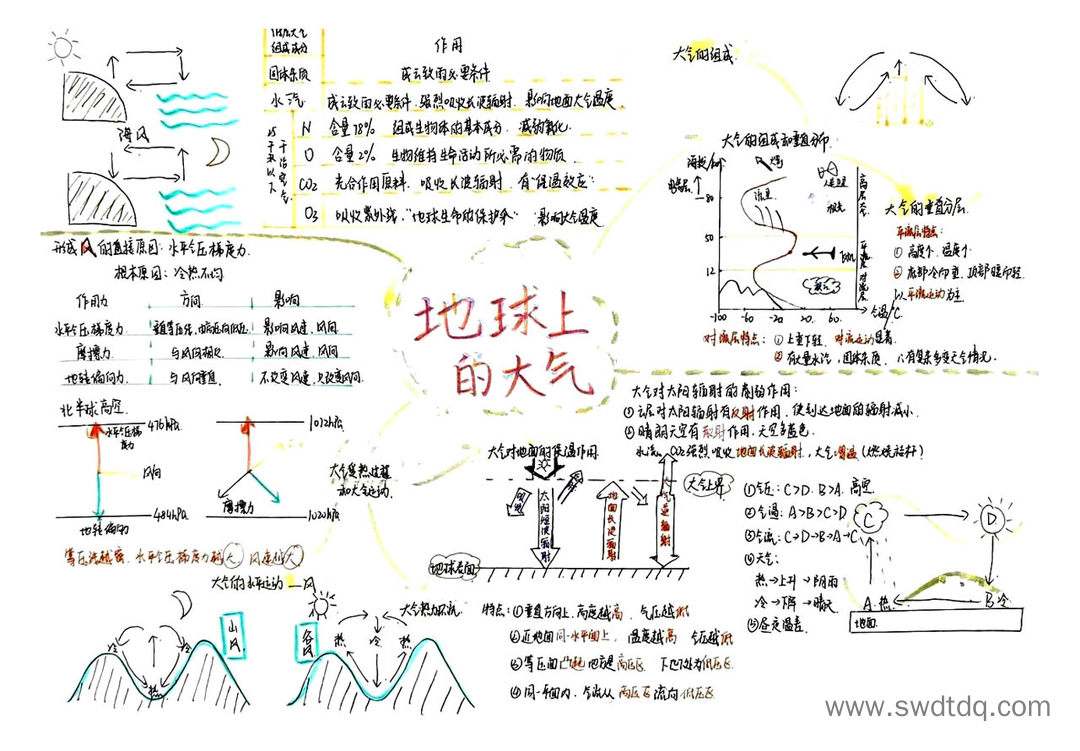 地球上
的大气
低层大气
组成成分
作用
固体杂质
成云致雨必要条件
水汽
成云致雨必要条件，强烈吸收长波辐射，影响地面大气温度
干洁空气
N
含量78%
组成生物体的基本成分，减弱氧化
O
生物维持生命活动所必需的物质
CO2
光合作用原料，吸收长波辐射，有"保温效应"
O3
吸收紫外线，"地球生命的保护伞"
影响大气温度
海风
形成风的直接原因：水平气压梯度力
根本原因：冷热不均
作用力
方向
影响
水平气压梯度力
影响风速、风向
摩擦力
与风向相反
影响风速、风向
地转偏向力
与风向垂直
不改变风速，只改变风向
北半球高空
476hPa
水平气压梯度力
风向
484hPa
地转偏向力
1012hPa
摩擦力
1020hPa
等压线越密，水平气压梯度力越大，风速越大
大气受热过程
和大气运动
大气的水平运动—风
山风
冷
冷
热
谷风
热
冷
热
大气的组成
大气的组成和垂直分布
海拔/km
电离层
80
50
12
流星
高层大气
平流层
对流层
-100
-60
-20
20
60
气温/℃
大气的垂直分层
平流层特点：
①高度↑，温度↑
以平流运动为主
对流层特点：①上冷下热，对流运动显著
②有大量水汽，固体杂质
大气对太阳辐射的削弱作用：
①云层对太阳辐射有反射作用，使到达地面的辐射减小
②晴朗天空有散射作用，天空多蓝色
水汽、CO2强烈吸收地面长波辐射，大气增温
大气对地面的保温作用
大气上界
太阳短波辐射
地面长波辐射
大气逆辐射
地球表面
特点：①垂直方向上，高度越高，气压越低
②近地面同一水平面上，温度越高 气压越低
③等压面凸起地方是高压区，下凹处为低压区
④同一平面内，气流从高压区流向低压区
①气压：C>D B>A 高空
②气温：A>B>C>D
③气流：C→D→B→A→C
④天气：
热→上升→阴雨
冷→下降→晴天
⑤昼夜温差
C
D
A 热
B 冷
地面
www.swdtdq.com